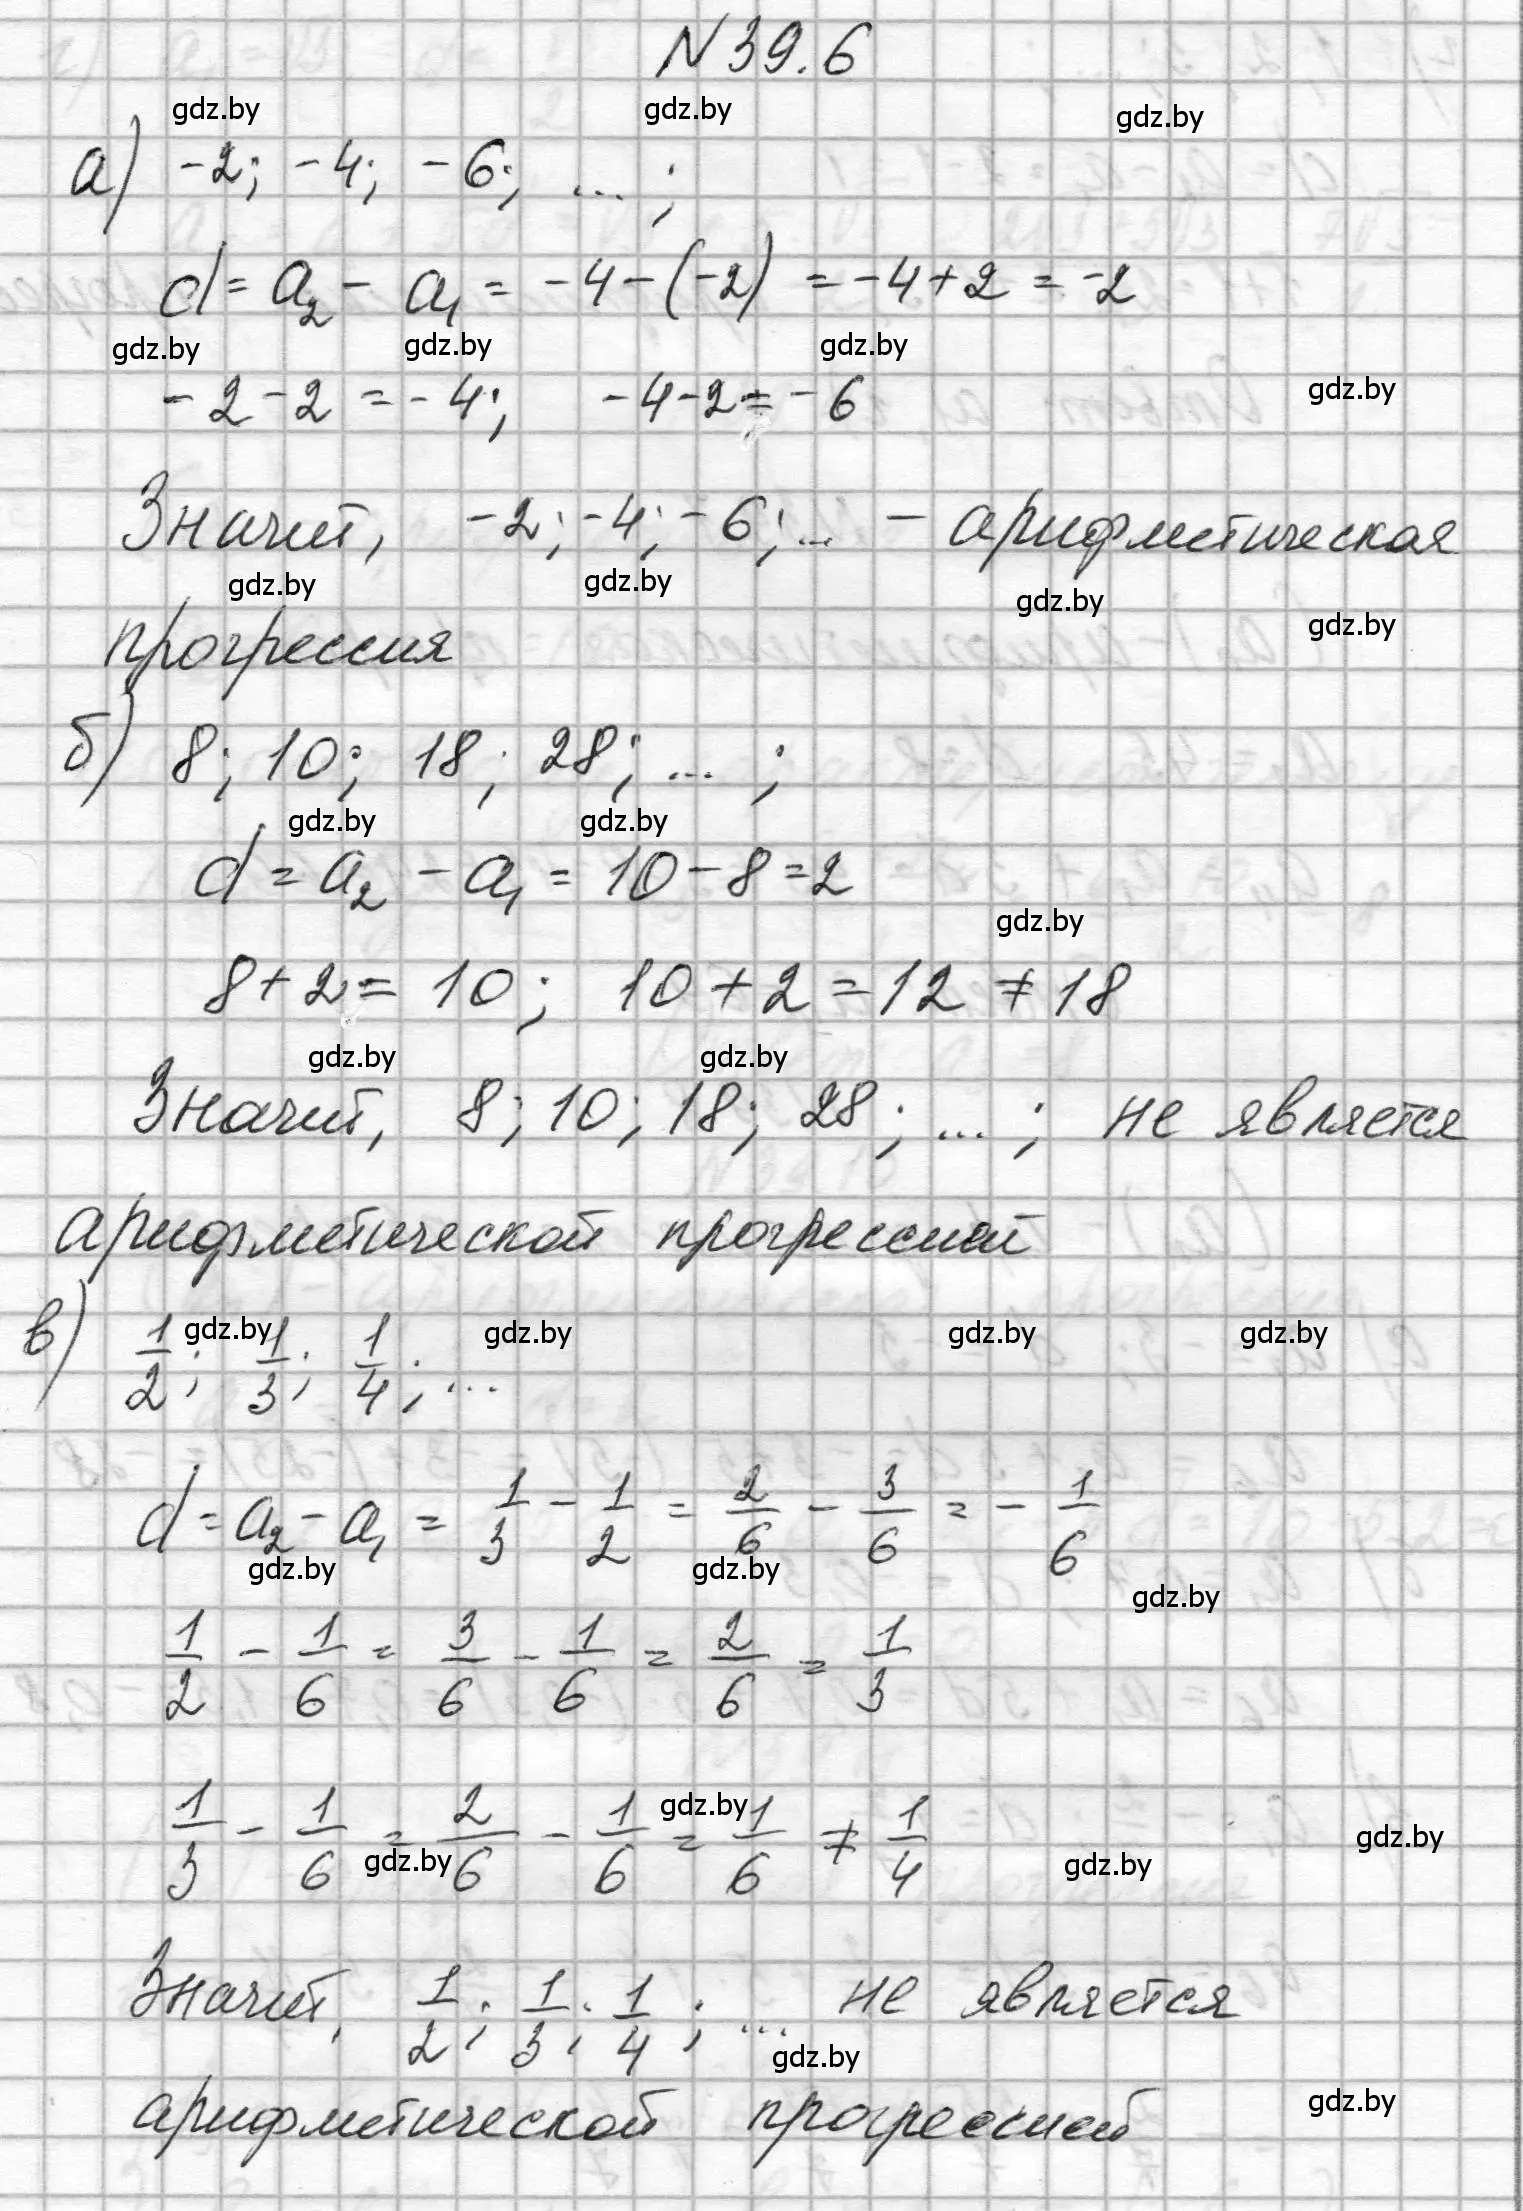 N 39.6
gdz.by gdz.by gdz.by
а) -2; -4; -6; ... ;
d = a₂ - a₁ = -4 - (-2) = -4 + 2 = -2
gdz.by gdz.by gdz.by
-2 - 2 = -4; -4 - 2 = -6 gdz.by
Значит, -2; -4; -6; ... - арифметическая
gdz.by gdz.by gdz.by gdz.by
прогрессия
б) 8; 10; 18; 28; ... ;
gdz.by gdz.by
d = a₂ - a₁ = 10 - 8 = 2
gdz.by
8 + 2 = 10; 10 + 2 = 12 ≠ 18
gdz.by gdz.by
Значит, 8; 10; 18; 28; ... ; не является
арифметической прогрессией
gdz.by gdz.by gdz.by gdz.by
в) 1/2; 1/3; 1/4; ...
d = a₂ - a₁ = 1/3 - 1/2 = 2/6 - 3/6 = - 1/6
gdz.by gdz.by gdz.by
1/2 - 1/6 = 3/6 - 1/6 = 2/6 = 1/3
gdz.by
1/3 - 1/6 = 2/6 - 1/6 = 1/6 ≠ 1/4
gdz.by gdz.by gdz.by
Значит, 1/2; 1/3; 1/4; ... не является
gdz.by
арифметической прогрессией gdz.by